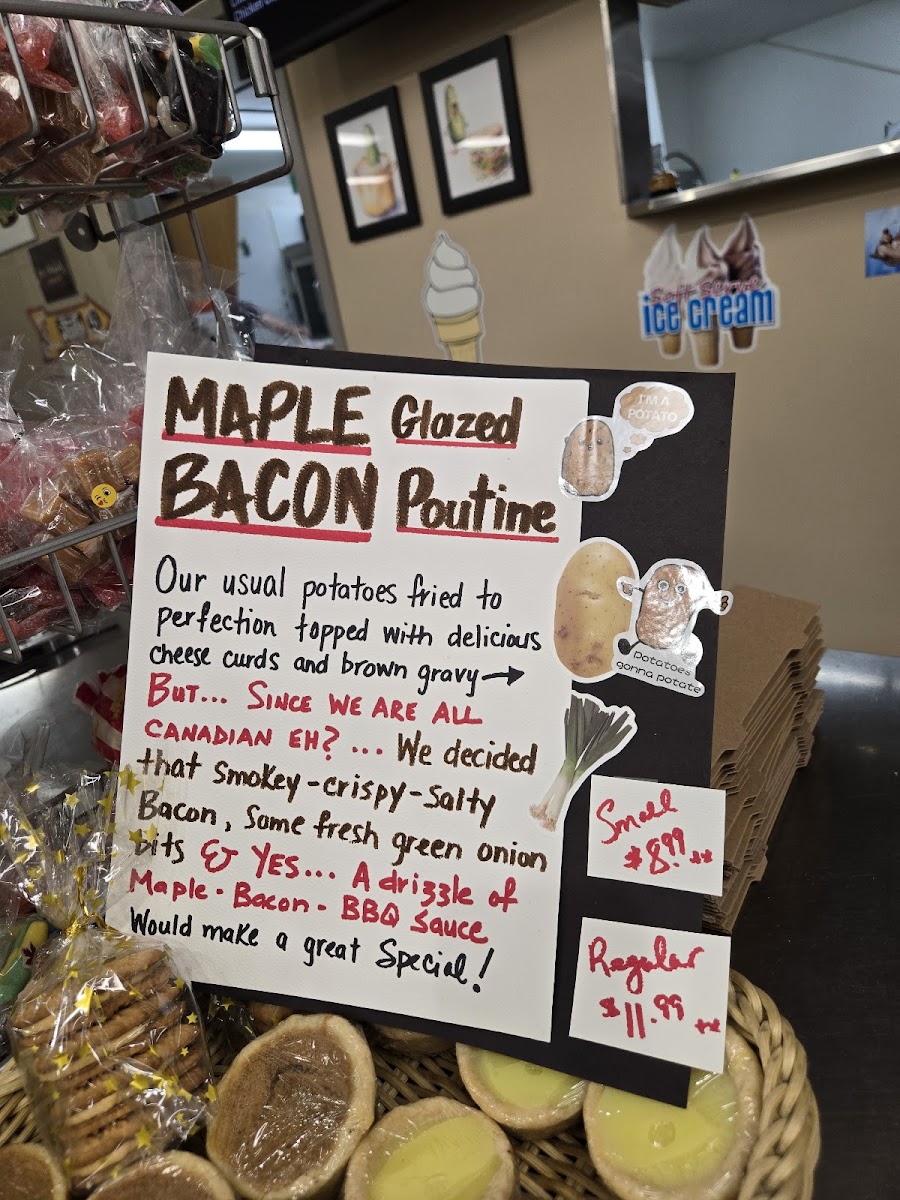 Chicken
Soft Serve
ice cream
MAPLE Glazed
BACON Poutine
I'M A
POTATO
Our usual potatoes fried to
perfection topped with delicious
cheese curds and brown gravy →
BUT... SINCE WE ARE ALL
CANADIAN EH? ... We decided
that smokey-crispy-salty
Bacon, Some fresh green onion
bits & YES... A drizzle of
Maple-Bacon-BBQ Sauce
Would make a great Special!
Potatoes
gonna potate
Small
$8.99 **
Regular
$11.99 **